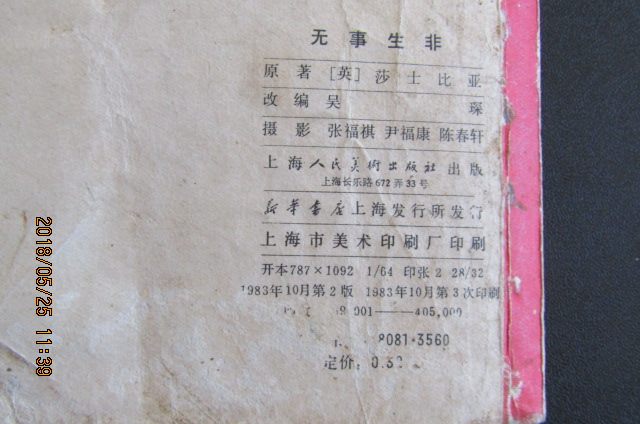 无事生非
原著 [英] 莎士比亚
改编 吴琛
摄影 张福祺 尹福康 陈春轩
上海人民美術出版社 出版
上海长乐路672弄33号
新华書店上海发行所发行
上海市美术印刷厂印刷
开本787×1092 1/64 印张 2 28/32
1983年10月第2版 1983年10月第3次印刷
001——405,000
8081·3560
定价: 0.3
2018/05/25 11:39